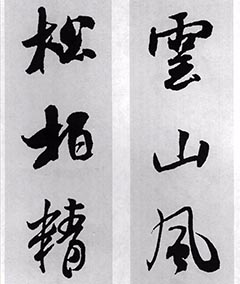 雲山風
松柏精